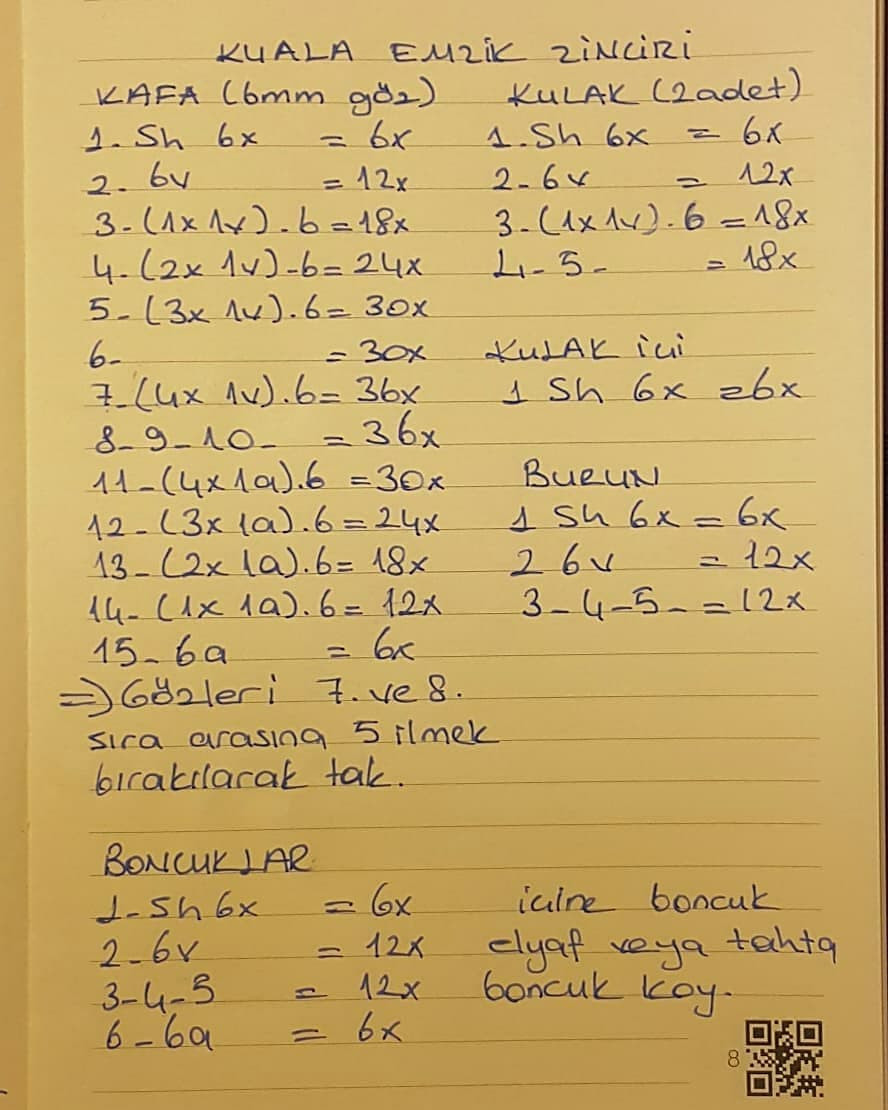 KUALA EMZİK ZİNCİRİ
KAFA (6mm göz)
1. Sh 6x = 6x
2. 6v = 12x
3-(1x 1v).6 = 18x
4-(2x 1v)-6= 24x
5-(3x 1v).6= 30x
6- = 30x
7-(4x 1v).6= 36x
8-9-10- = 36x
11-(4x1a).6 =30x
12-(3x 1a).6=24x
13-(2x 1a).6= 18x
14-(1x 1a).6= 12x
15-6a = 6x
=> Gözleri 7. ve 8.
sıra arasına 5 ilmek
bırakılarak tak.
KULAK (2adet)
1.Sh 6x = 6x
2-6v = 12x
3-(1x 1v).6 =18x
4-5- = 18x
KULAK içi
1 Sh 6x =6x
BURUN
1 Sh 6x = 6x
2 6v = 12x
3-4-5- =12x
BONCUKLAR
1-Sh 6x = 6x
2-6v = 12x
3-4-5 = 12x
6-6a = 6x
içine boncuk
elyaf veya tahta
boncuk koy.
8